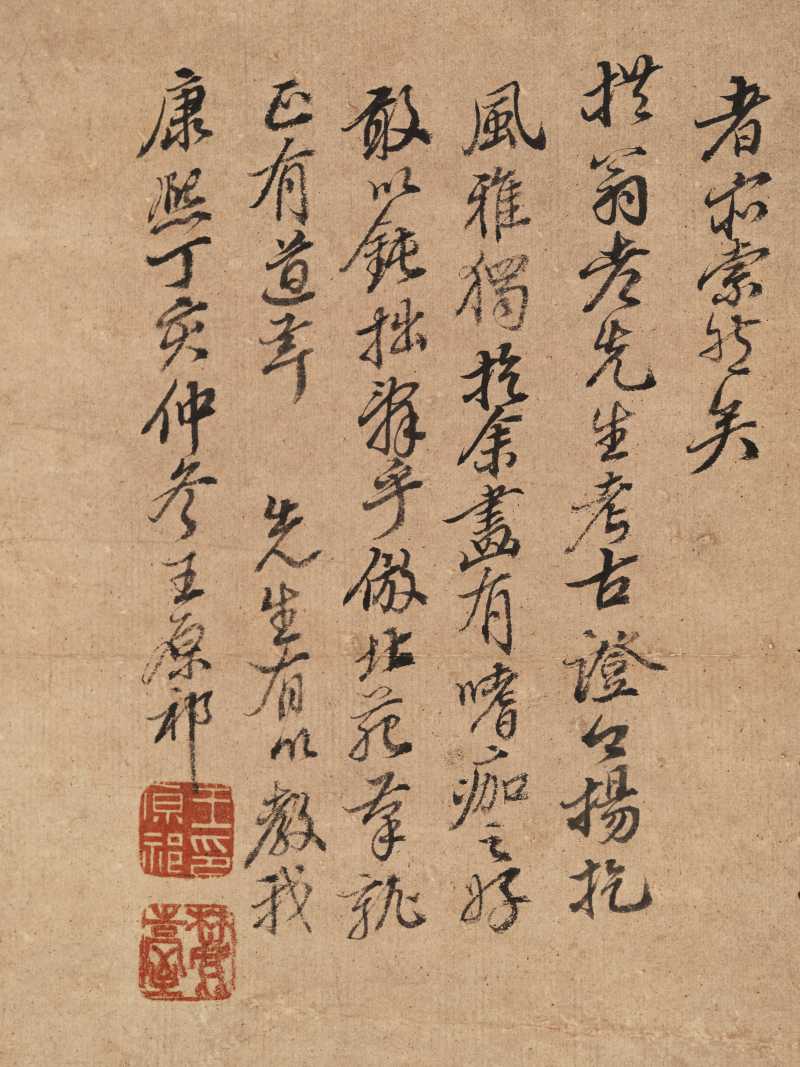 者亦索然矣
拱翁老先生考古證今揚扢
風雅獨於余畫有嗜痂之好
敢以鈍拙辭乎倣北苑筆就
正有道幸 先生有以教我
康熙丁亥仲冬王原祁
王印原祁
麓臺